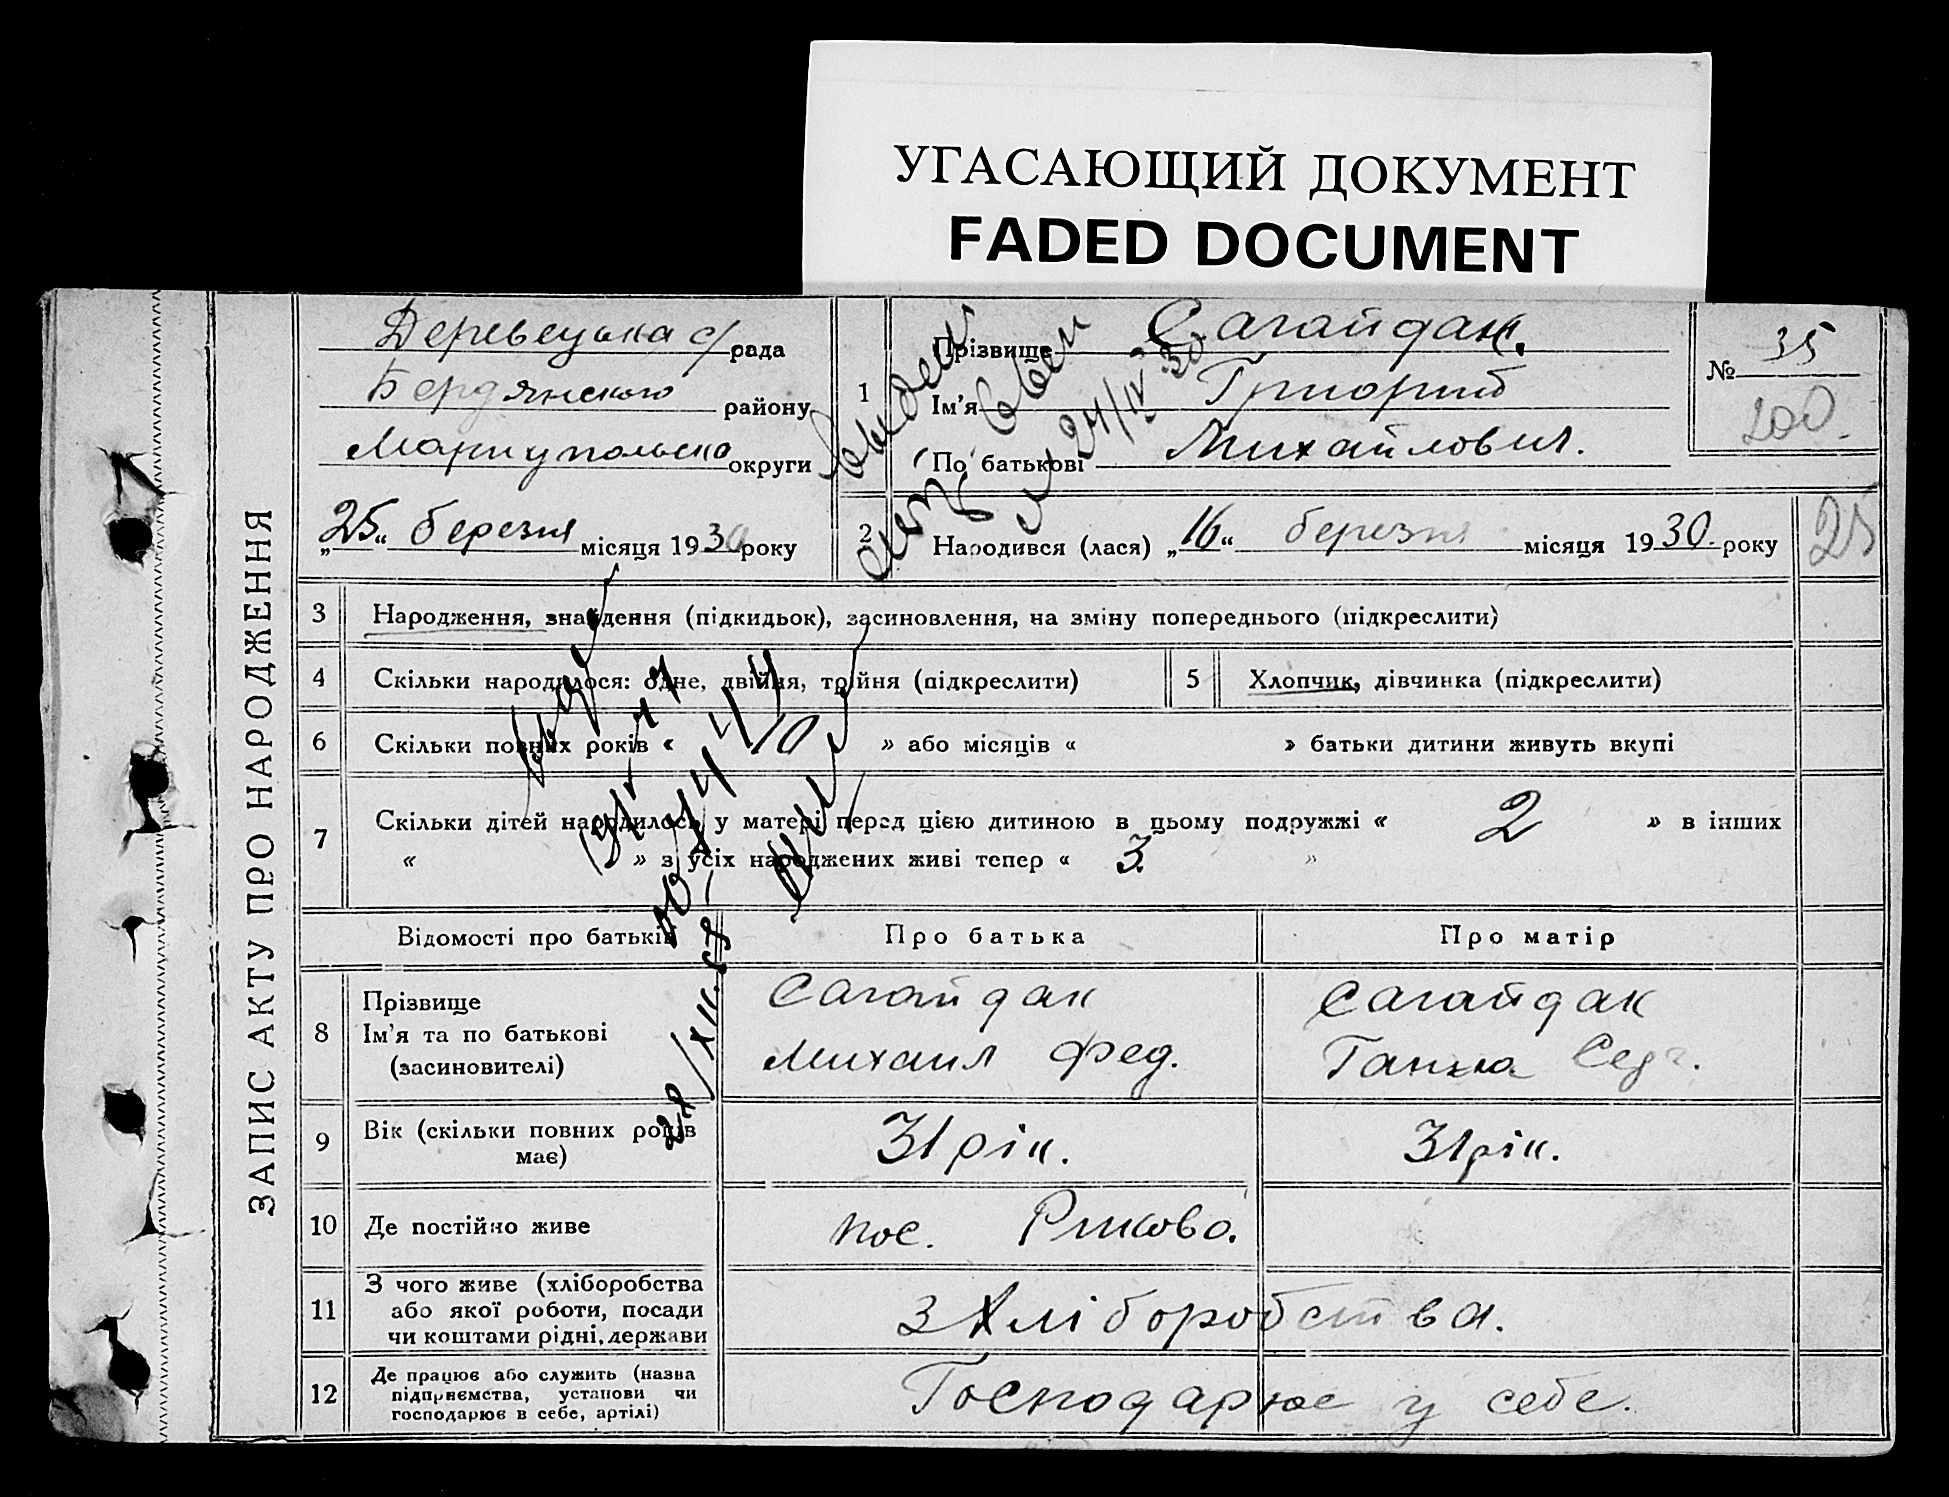 УГАСАЮЩИЙ ДОКУМЕНТ
FADED DOCUMENT
ЗАПИС АКТУ ПРО НАРОДЖЕННЯ
Деревецька с/рада
Бердянського району
Мариупольсько округи
„25“ березня місяця 1930 року
1 Прізвище Сагайдак.
Ім'я Григорий
По батькові Михайлович.
№ 35
200.
24/IV 30
2 Народився (лася) „16“ березня місяця 1930. року
25
3 Народження, знайдення (підкидьок), засиновлення, на зміну попереднього (підкреслити)
4 Скільки народилося: одне, двійня, трійня (підкреслити)
5 Хлопчик, дівчинка (підкреслити)
6 Скільки повних років « 10 » або місяців « » батьки дитини живуть вкупі
7 Скільки дітей народилось у матері перед цією дитиною в цьому подружжі « 2 » в інших
« » з усіх народжених живі тепер « 3. »
Відомості про батьків
Про батька
Про матір
8 Прізвище
Ім'я та по батькові
(засиновителі)
Сагайдак
Михаил Фед.
Сагайдак
Ганна
28/XII.
9 Вік (скільки повних років
має)
31 рік.
31 рік.
10 Де постійно живе
пос. Риково.
11 З чого живе (хліборобства
або якої роботи, посади
чи коштами рідні, держави
З Хліборобства.
12 Де працює або служить (назва
підприємства, установи чи
господарює в себе, артілі)
Господарює у себе.